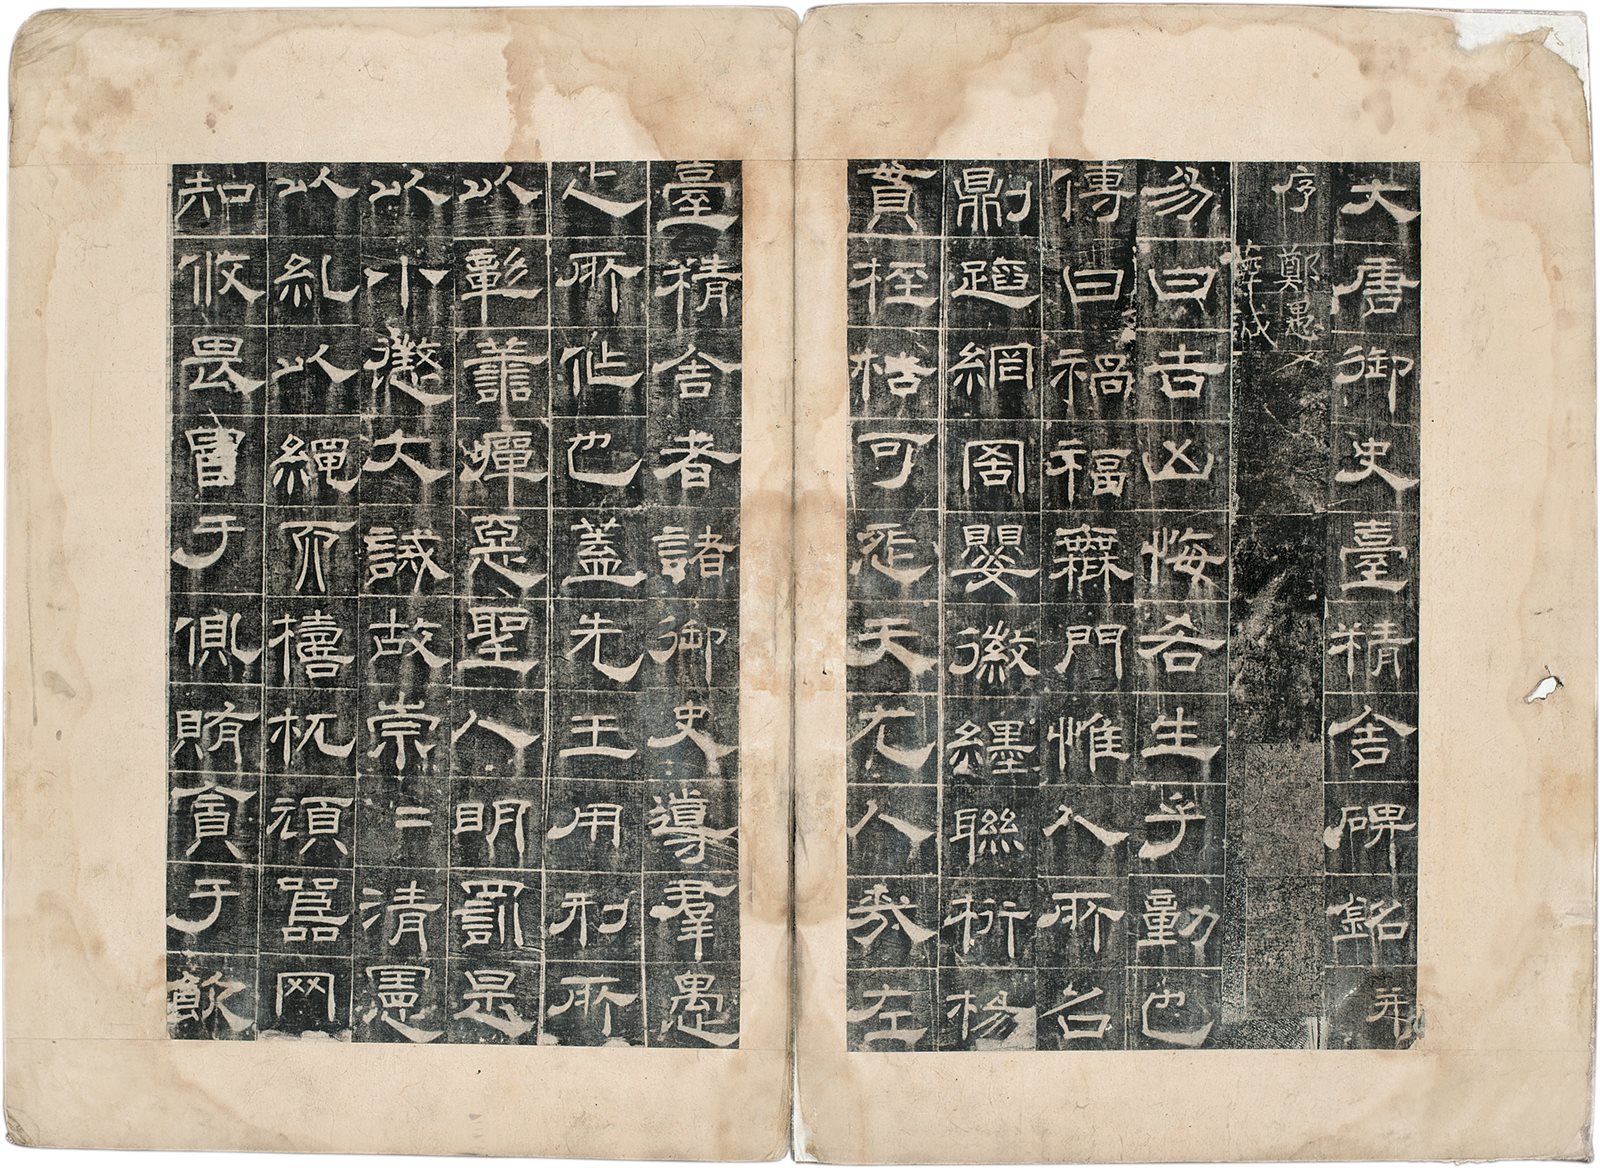 大唐御史臺精舍碑銘并
序
鄭愚
易曰吉凶悔吝生乎動也
傳曰禍福無門惟人所召
則蹈網罟嬰徽纆聯桁楊
貫桎梏可怨天尤人哉左
臺精舍者諸御史導羣愚
之所作也蓋先王用刑所
以彰善癉惡聖人明罰是
以小懲大誡故崇二清憲
以糺以繩而檮杌頑嚚网
知攸畏冒于貨賄貪于飲